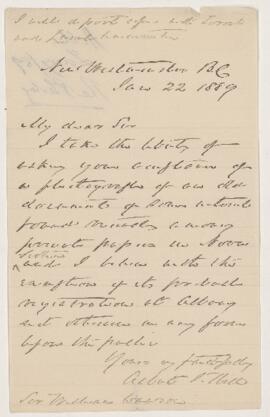 I will deposit copies with Toronto
and
New Westminster BC
Jan 22 1889
My dear Sir
I take the liberty of
asking your acceptance of
a photograph of an old
document of some interest
found recently among
private papers in Nova
Scotia
and I believe with the
exception of its probable
registration at Albany
not otherwise in any form
before the public
Yours very faithfully
Albert
Sir William Dawson